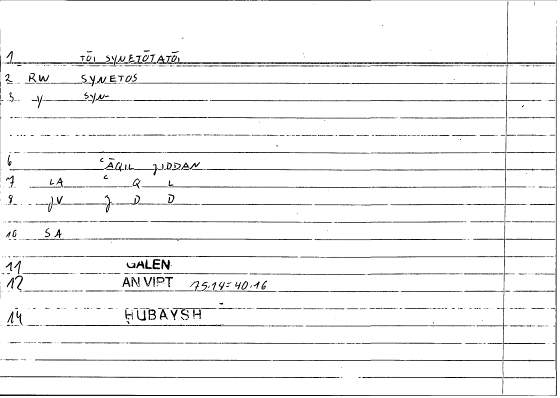 1 TŌI SYNETŌTATŌI
2 RW SYNETOS
3 -y SYN-
6 ʿĀQIL JIDDAN
7 LA ʿ Q L
8 JV J D D
10 SA
11 GALEN
12 AN VIPT 75.14=40.16
14 ḤUBAYSH